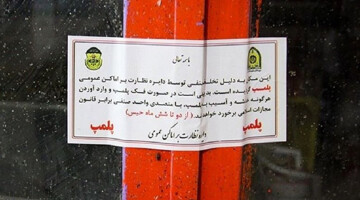 باسمه تعالی
این مکان به دلیل تخلف صنفی توسط دایره نظارت بر اماکن عمومی
پلمپ گردیده است. بدیهی است در صورت فک پلمپ و وارد آوردن
هرگونه خدشه و آسیب به پلمپ، با متصدی واحد صنفی برابر قانون
مجازات اسلامی برخورد خواهد شد. ( از دو تا شش ماه حبس )
پلمپ
دایره نظارت بر اماکن عمومی
پلمپ